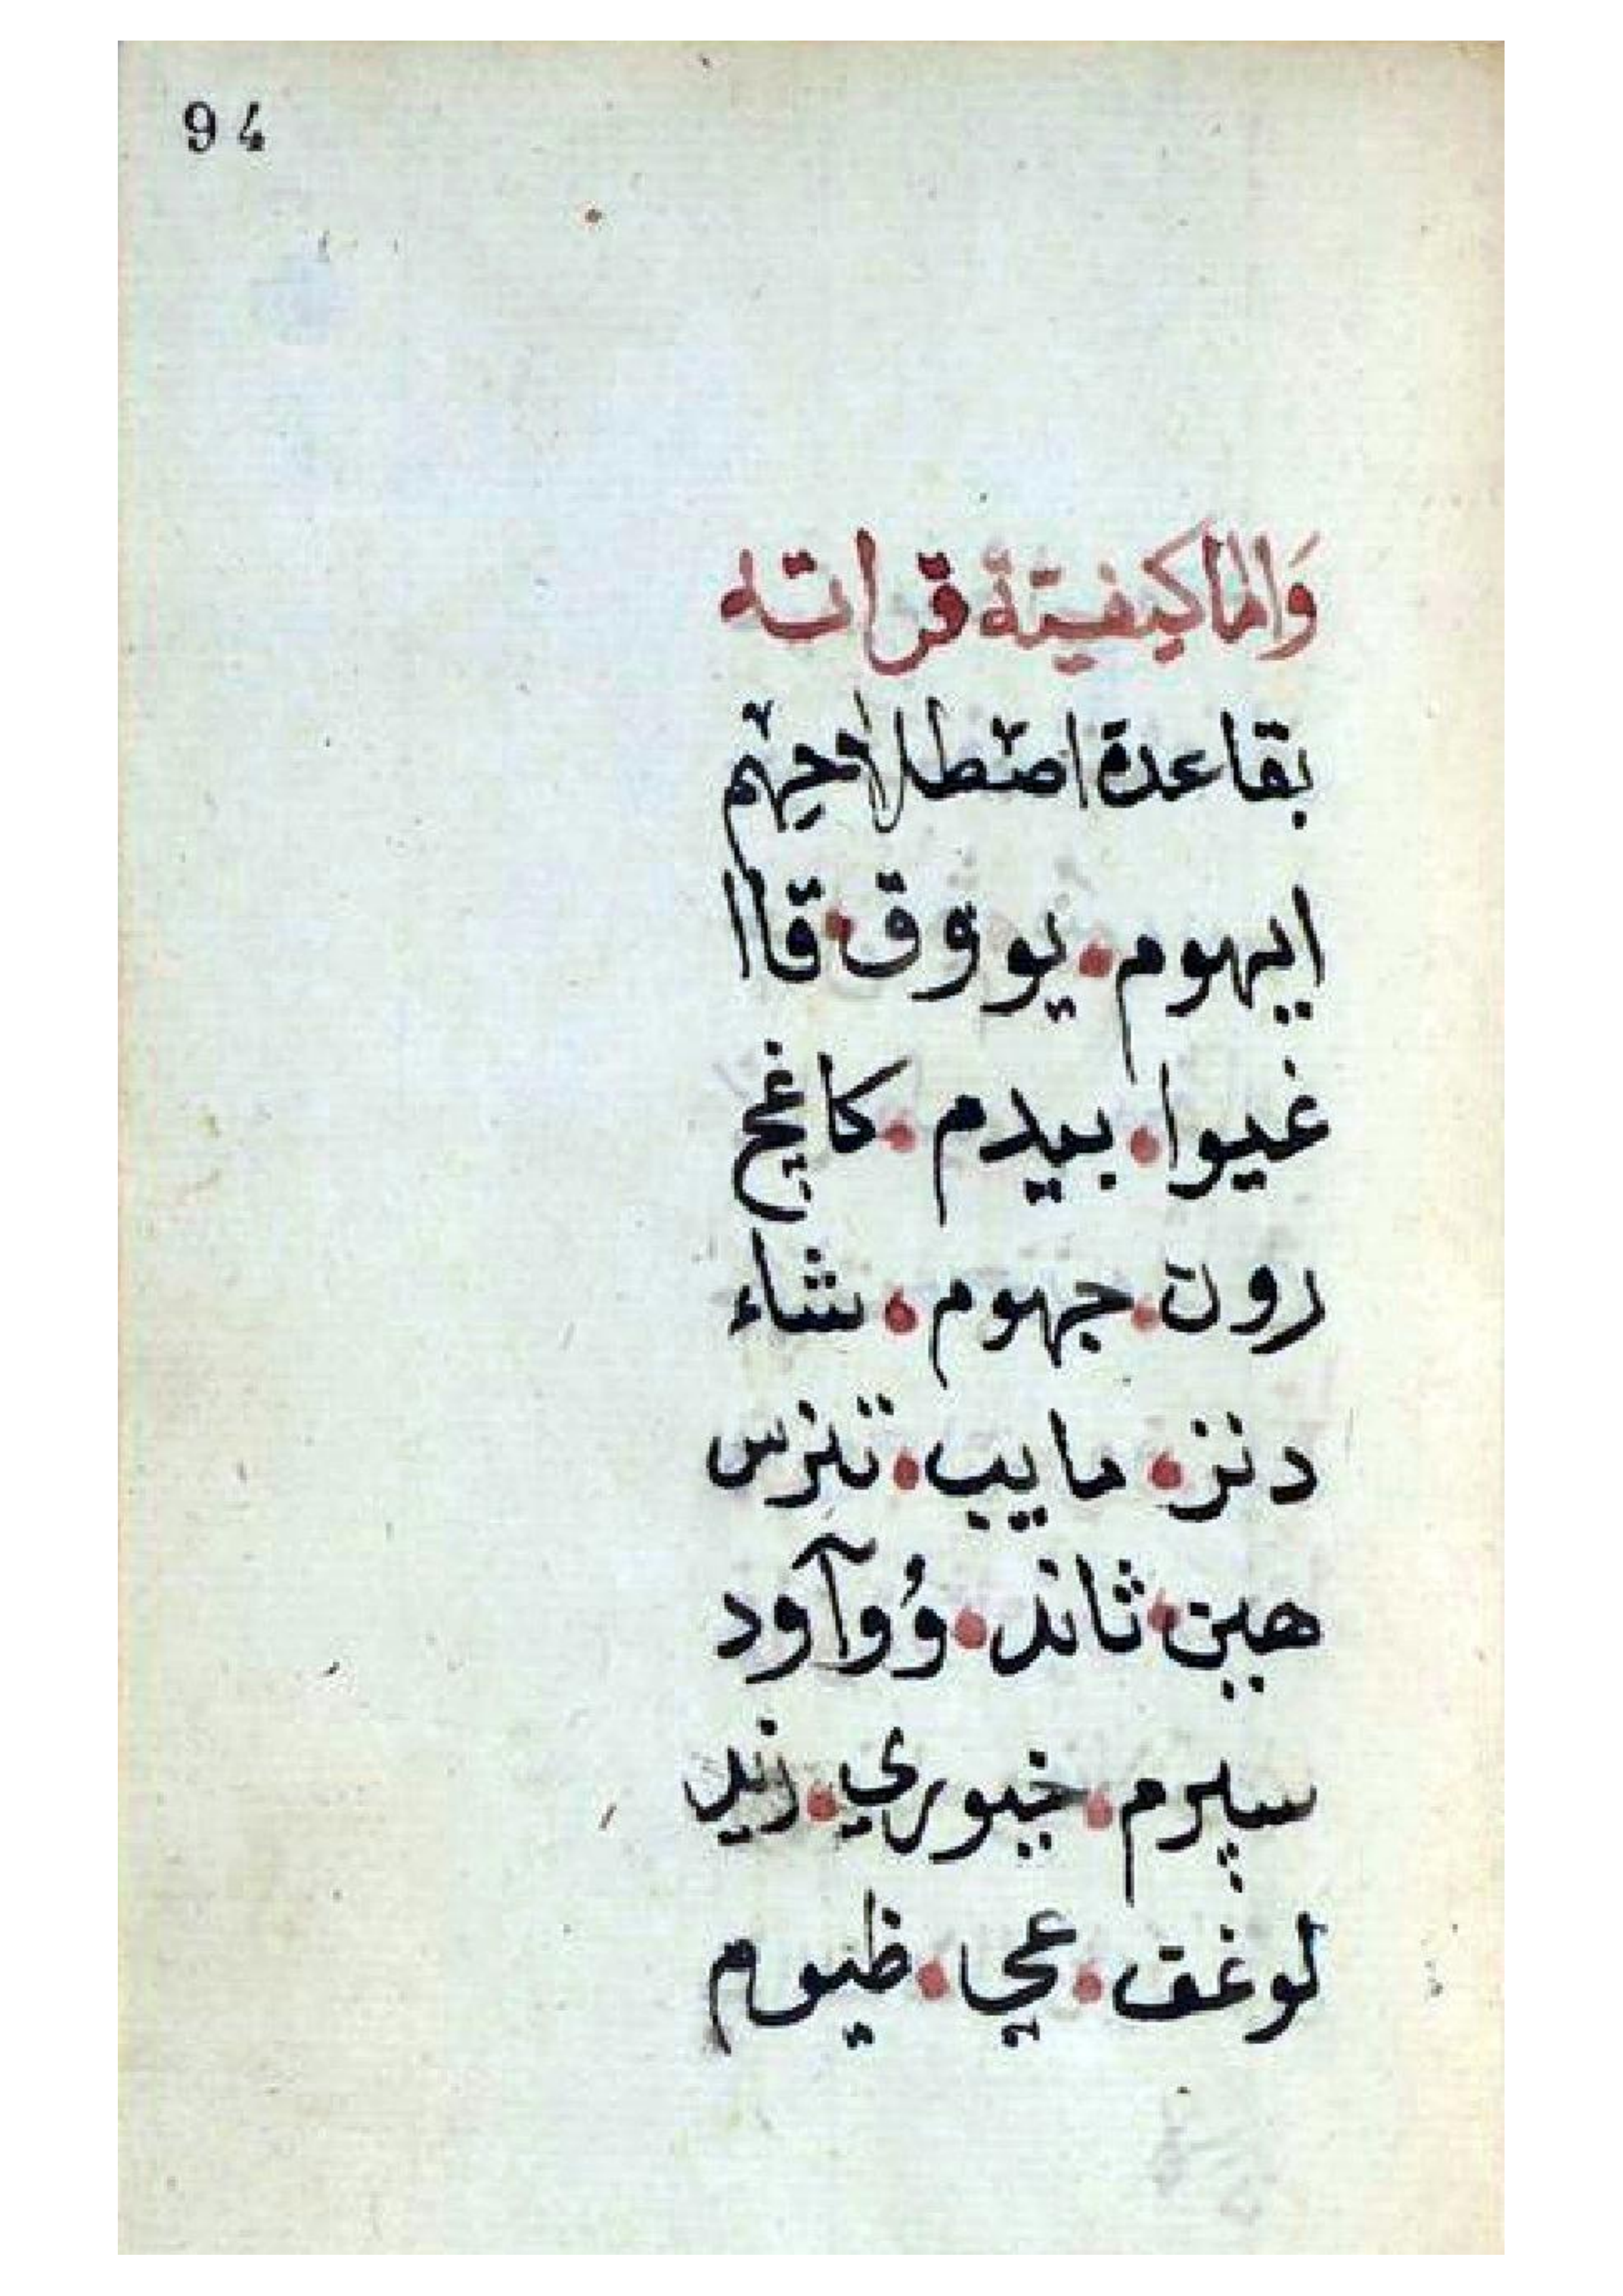 94
وَاما كيفيّة قراته
بقاعدة اصْطلاحِهم
ايهوم • يو وٯ ق • قاا
غيوا • بيدم • كاغچ
رون • جهوم • شاء
دنز • مايب • تنزس
هين • ثاند • وُوآود
سيرم • خيوري • زيد
لوغق • عجي • ظيوم